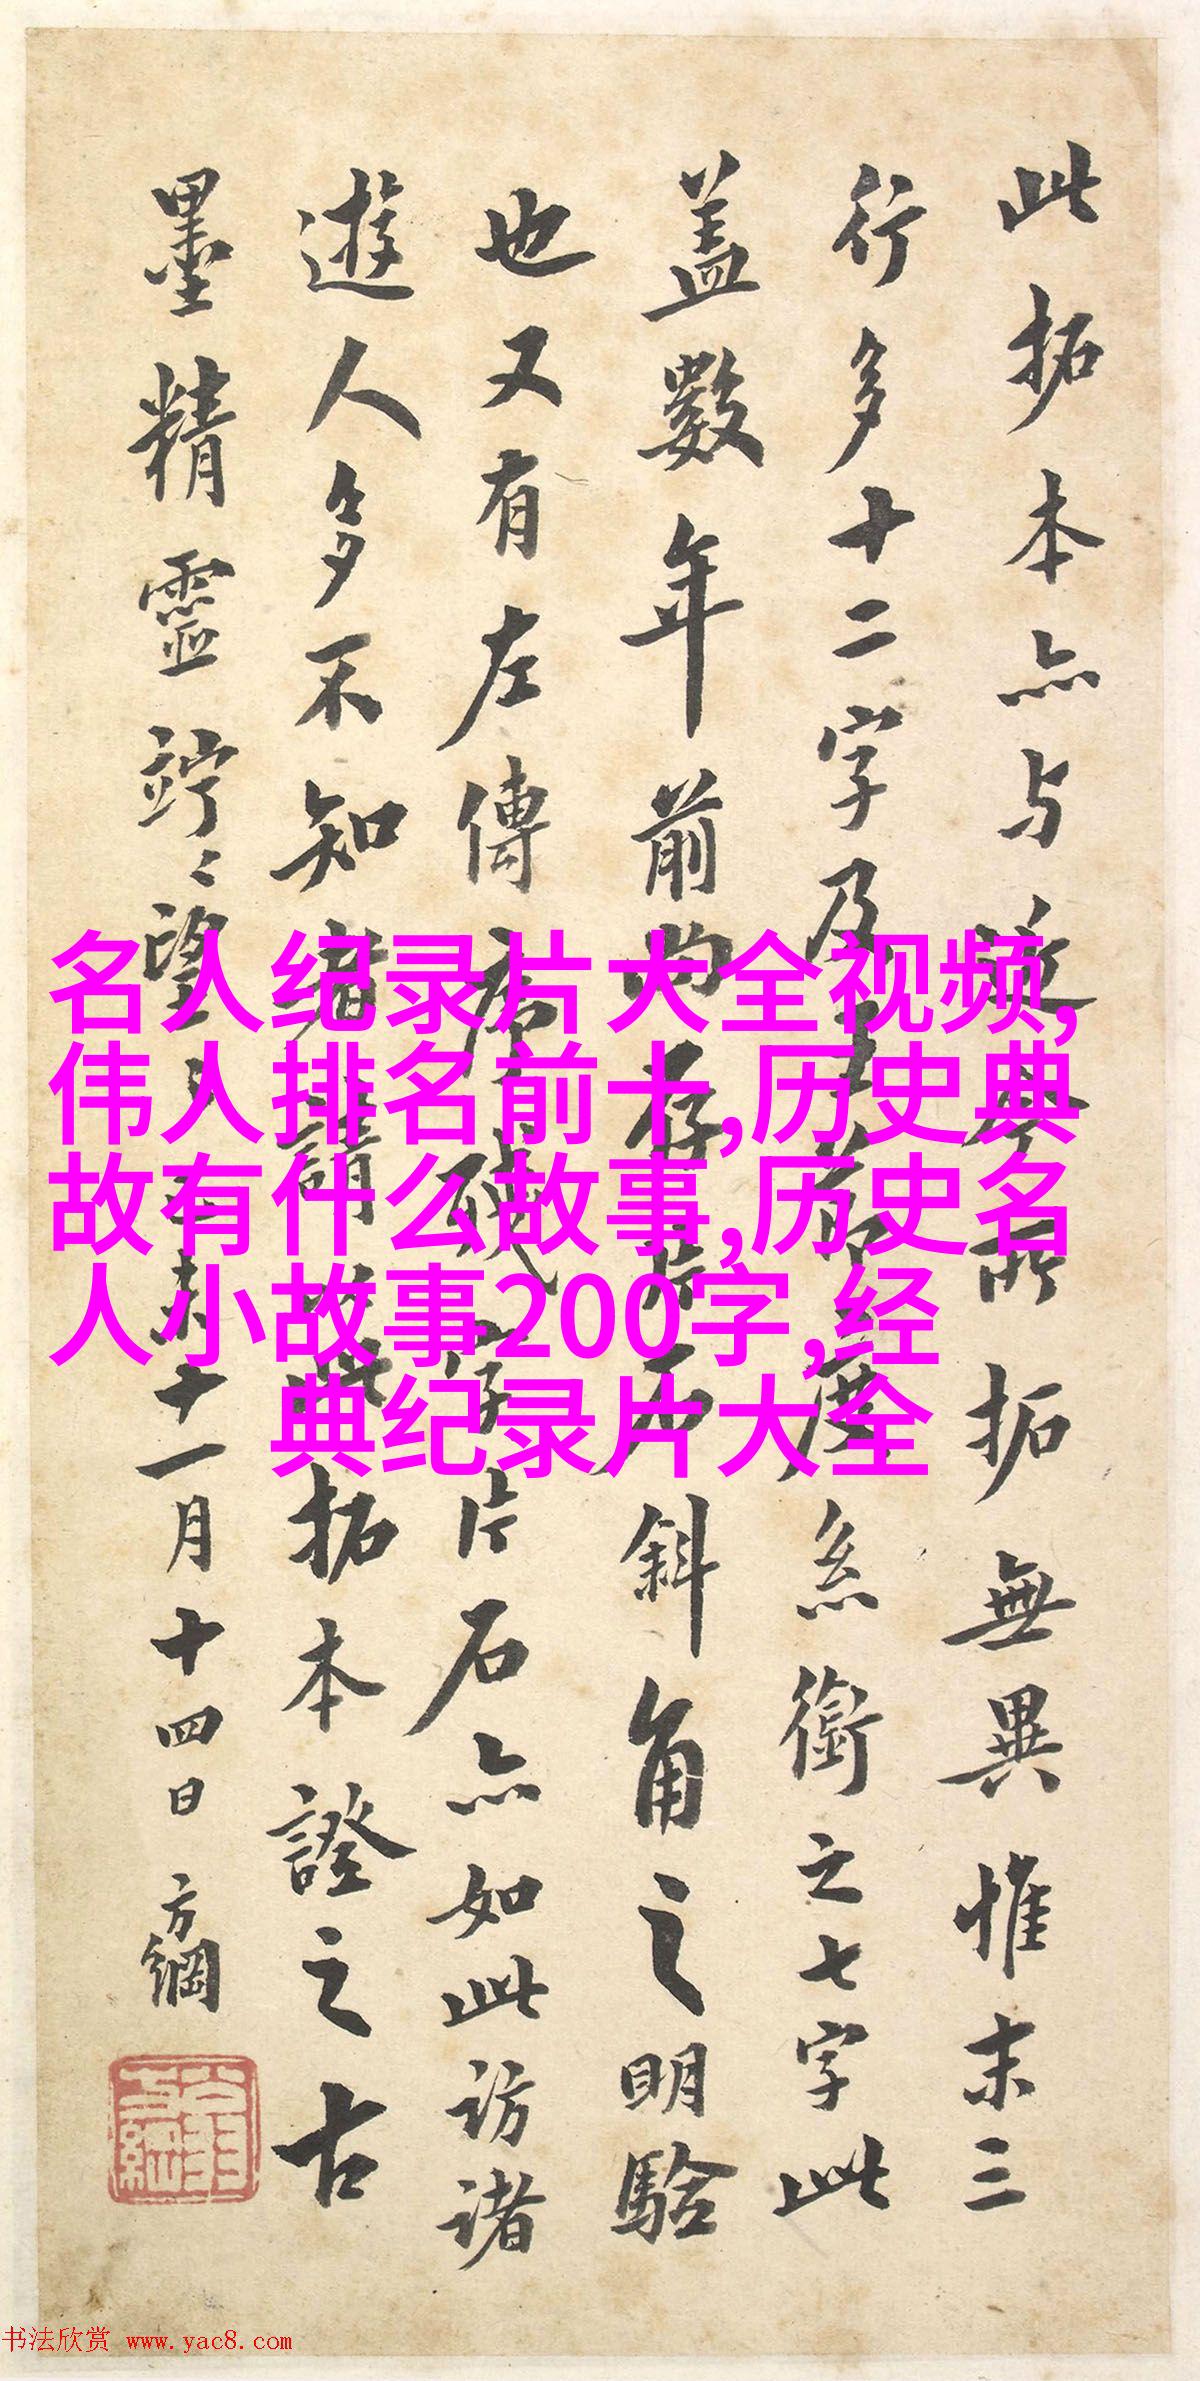 此拓本亦与近今所拓無異惟末三
行多十二字及前度系銜之七字此
盖數年前尚存片石斜角之明驗
也又有左傳殘字片石亦如此訪諸
遊人多不知者請此拓本證之古
墨精靈竚〻望未十一月十四日方綱
翁方綱
名人纪录片大全视频,
伟人排名前十,历史典
故有什么故事,历史名
人小故事200字,经
典纪录片大全
书法欣赏 www.yac8.com